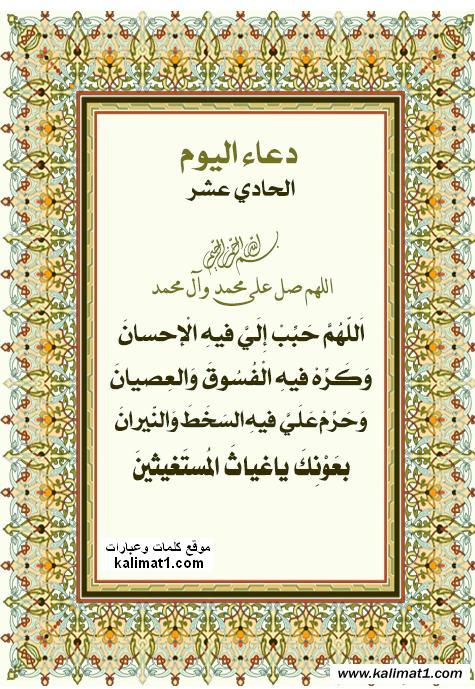 دعاء اليوم
الحادي عشر
بسم الله الرحمن الرحيم
اللهم صل على محمد وآل محمد
اَللّهُمَّ حَبِّبْ إِلَيَّ فيهِ الْإحسانَ
وَكَرِّهْ فيهِ الْفُسُوقَ وَالعِصيانَ
وَحَرِّمْ عَلَيَّ فيهِ السَخَطَ وَالنّيرانَ
بعَوْنِكَ ياغياثَ المُستَغيثينَ
موقع كلمات وعبارات
kalimat1.com
www.kalimat1.com